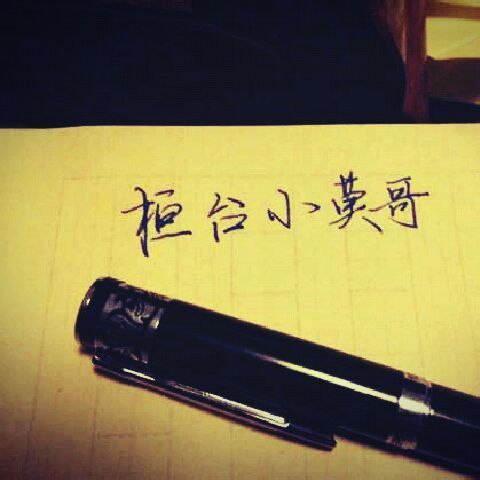 柜台小英哥